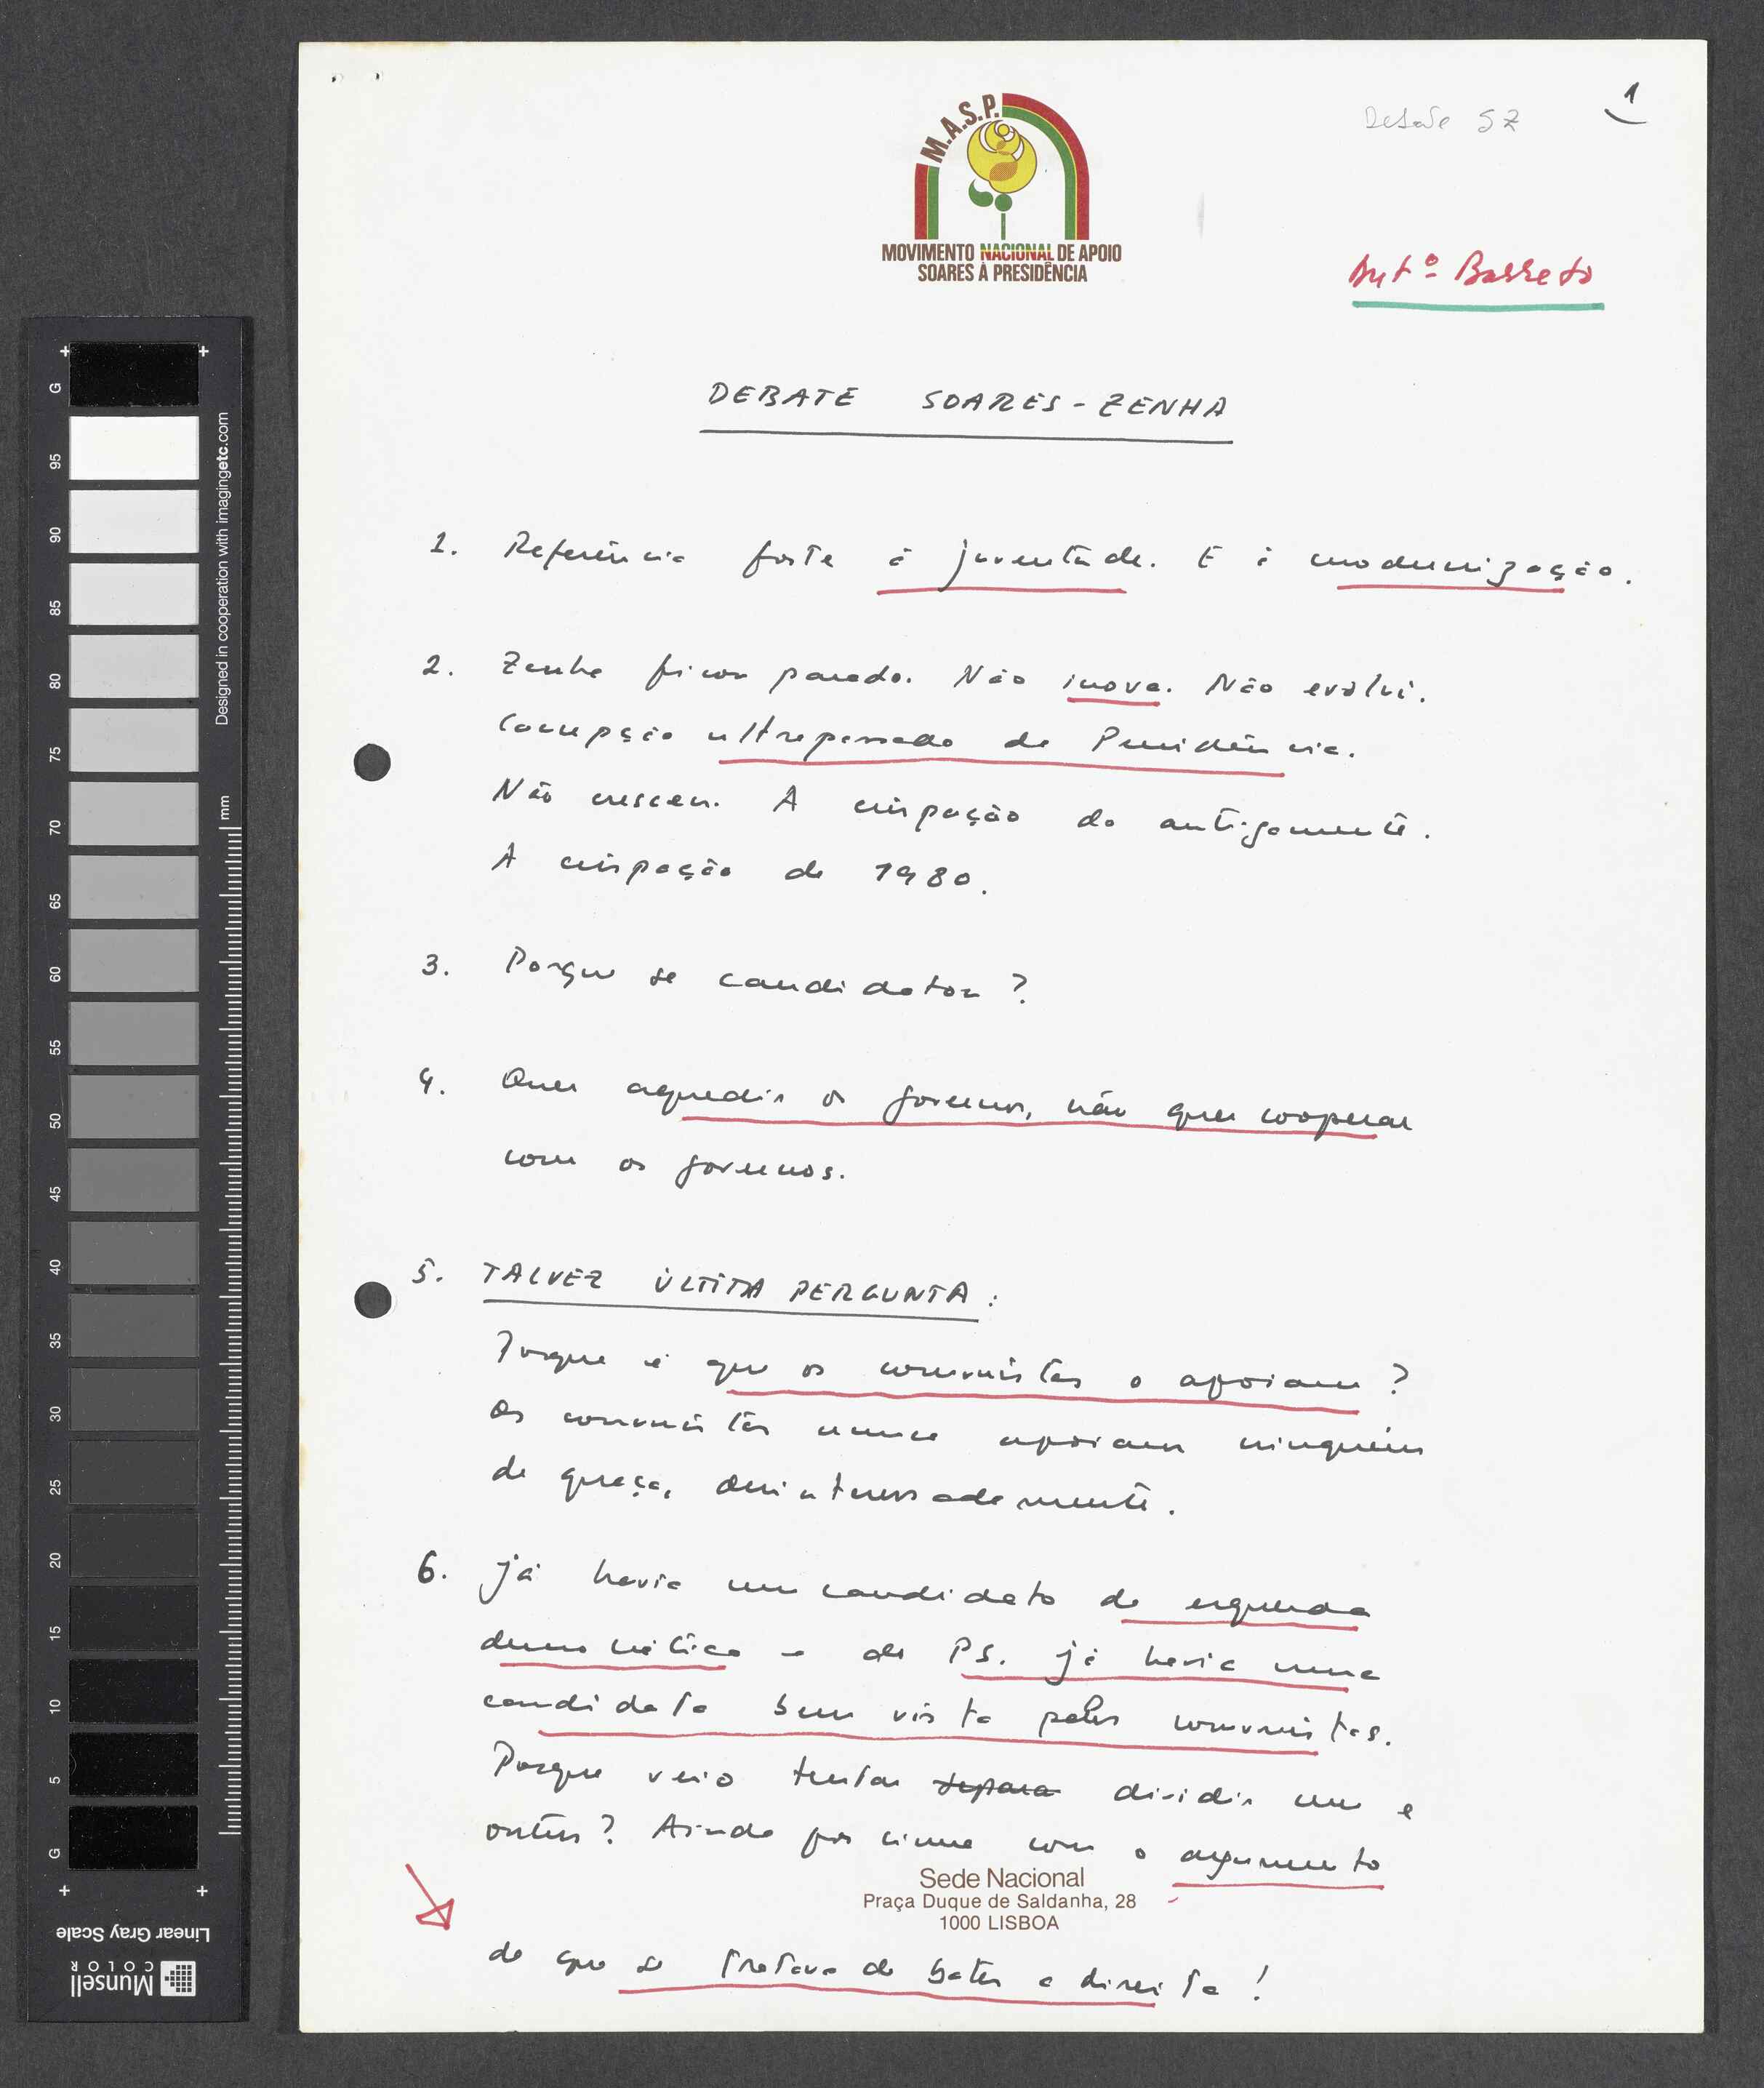 Debate SZ
1
M.A.S.P.
MOVIMENTO NACIONAL DE APOIO
SOARES À PRESIDÊNCIA
Antº Barreto
DEBATE SOARES-ZENHA
1. Referência forte à juventude. E à modernização.
2. Zenha ficou parado. Não inova. Não evolui.
Concepção ultrapassada da Presidência.
Não cresceu. A crispação de antigamente.
A crispação de 1980.
3. Porque se candidatou?
4. Quer agredir os governos, não quer cooperar
com os governos.
5. TALVEZ ÚLTIMA PERGUNTA:
Porque é que os comunistas o apoiam?
Os comunistas nunca apoiam ninguém
de graça, desinteressadamente.
6. Já havia um candidato da esquerda
democrática e do PS. Já havia uma
candidata bem vista pelos comunistas.
Porque veio tentar separa dividir uns e
outros? Ainda por cima com o argumento
Sede Nacional
Praça Duque de Saldanha, 28
1000 LISBOA
de que se tratava de bater a direita!
G
95
90
85
80
75
70
65
60
55
50
45
40
35
30
25
20
15
10
5
G
mm
Designed in cooperation with imagingetc.com
Linear Gray Scale
Munsell
COLOR